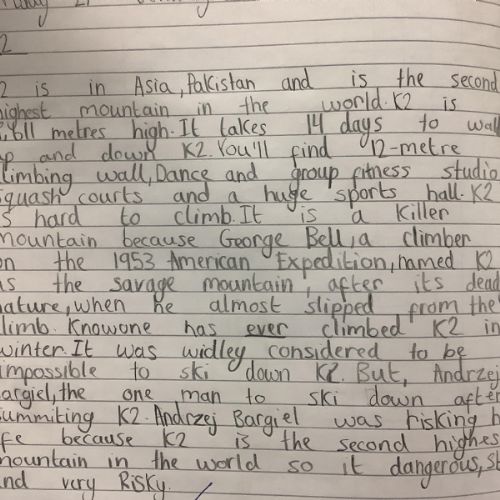 2
2 is in Asia, Pakistan and is the second
highest mountain in the world. K2 is
611 metres high. It takes 14 days to walk
up and down K2. You'll find 12-metre
climbing wall, Dance and group fitness studio
squash courts and a huge sports hall. K2
is hard to climb. It is a killer
mountain because George Bell, a climber
on the 1953 American Expedition, named K2
as the savage mountain, after its dead
nature, when he almost slipped from the
climb. Knowone has ever climbed K2 in
winter. It was widley considered to be
impossible to ski down K2. But, Andrzej
Bargiel, the one man to ski down after
summiting K2. Andrzej Bargiel was risking h
fe because K2 is the second highes
mountain in the world so it dangerous, st
and very Risky.